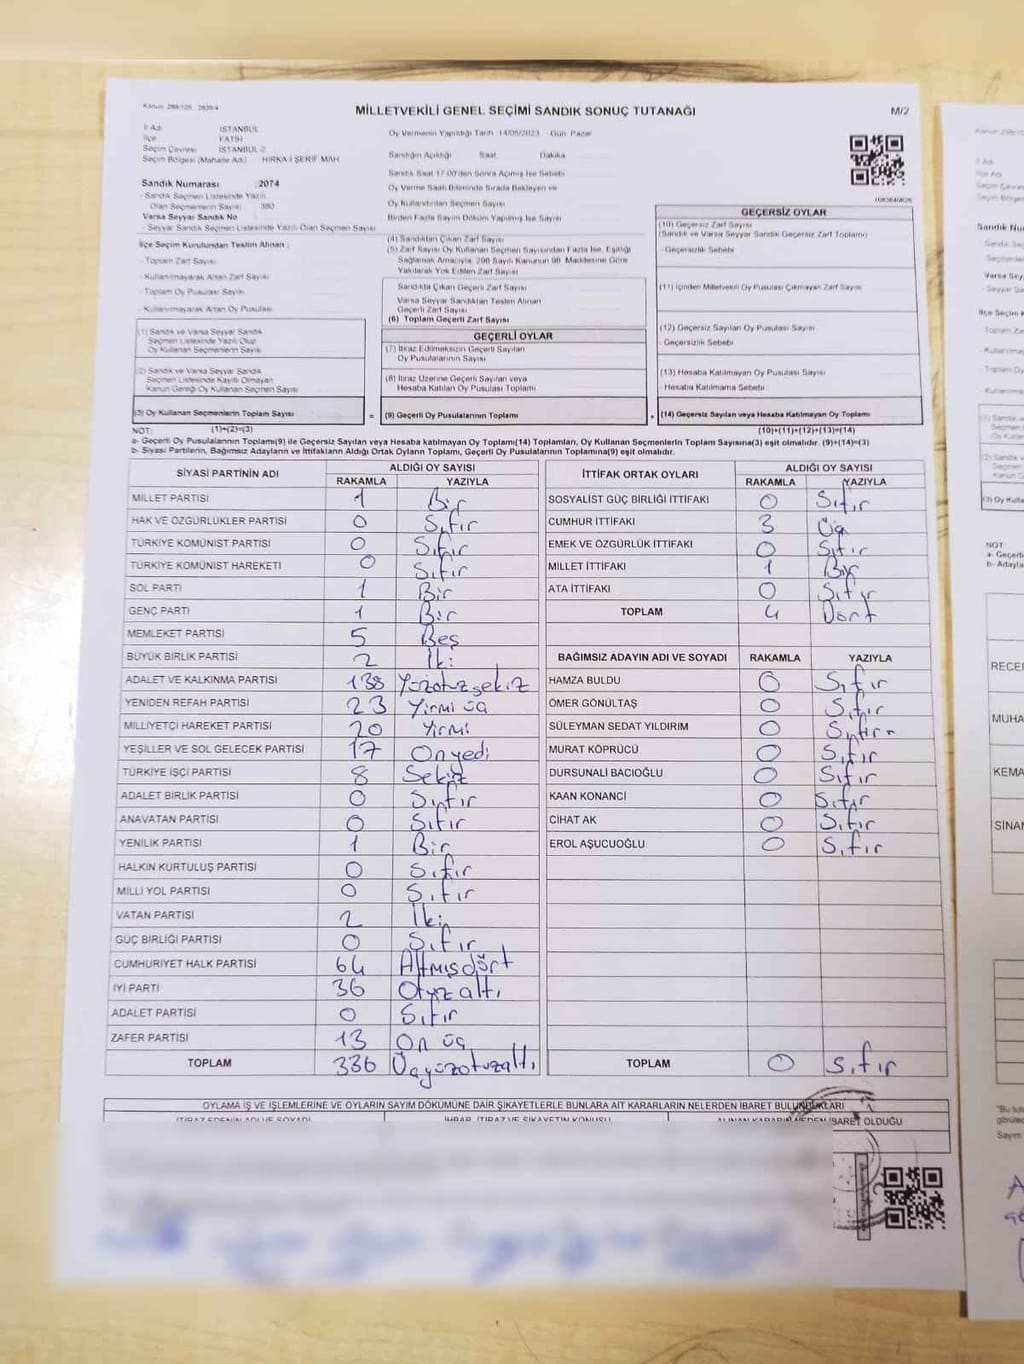 Kanun: 298/105 2839/4
MİLLETVEKİLİ GENEL SEÇİMİ SANDIK SONUÇ TUTANAĞI
M/2
İl Adı İSTANBUL
İlçe FATİH
Seçim Çevresi İSTANBUL-2
Seçim Bölgesi (Mahalle Adı) HIRKA-İ ŞERİF MAH
Sandık Numarası 2074
- Sandık Seçmen Listesinde Yazılı
Olan Seçmenlerin Sayısı 380
Varsa Seyyar Sandık No
- Seyyar Sandık Seçmen Listesinde Yazılı Olan Seçmen Sayısı
Oy Vermenin Yapıldığı Tarih 14/05/2023 Gün Pazar
Sandığın Açıldığı Saat Dakika
Sandık Saat 17.00'den Sonra Açılmış İse Sebebi
Oy Verme Saati Bitiminde Sırada Bekleyen ve
Oy Kullandırılan Seçmen Sayısı
Birden Fazla Sayım Dökümü Yapılmış İse Sayısı
İlçe Seçim Kurulundan Teslim Alınan :
- Toplam Zarf Sayısı
- Kullanılmayarak Artan Zarf Sayısı
- Toplam Oy Pusulası Sayısı
- Kullanılmayarak Artan Oy Pusulası
(1) Sandık ve Varsa Seyyar Sandık
Seçmen Listesinde Yazılı Olup
Oy Kullanan Seçmenlerin Sayısı
(2) Sandık ve Varsa Seyyar Sandık
Seçmen Listesinde Kayıtlı Olmayan
Kanun Gereği Oy Kullanan Seçmen Sayısı
(3) Oy Kullanan Seçmenlerin Toplam Sayısı
(4) Sandıktan Çıkan Zarf Sayısı
(5) Zarf Sayısı Oy Kullanan Seçmen Sayısından Fazla İse, Eşitliği
Sağlamak Amacıyla, 298 Sayılı Kanunun 98. Maddesine Göre
Yakılarak Yok Edilen Zarf Sayısı
Sandıkta Çıkan Geçerli Zarf Sayısı
Varsa Seyyar Sandıktan Teslim Alınan
Geçerli Zarf Sayısı
(6) Toplam Geçerli Zarf Sayısı
GEÇERLİ OYLAR
(7) İtiraz Edilmeksizin Geçerli Sayılan
Oy Pusulalarının Sayısı
(8) İtiraz Üzerine Geçerli Sayılan veya
Hesaba Katılan Oy Pusulası Toplamı
= (9) Geçerli Oy Pusulalarının Toplamı
GEÇERSİZ OYLAR
(10) Geçersiz Zarf Sayısı
(Sandık ve Varsa Seyyar Sandık Geçersiz Zarf Toplamı)
- Geçersizlik Sebebi
(11) İçinden Milletvekili Oy Pusulası Çıkmayan Zarf Sayısı
(12) Geçersiz Sayılan Oy Pusulası Sayısı
- Geçersizlik Sebebi
(13) Hesaba Katılmayan Oy Pusulası Sayısı
Hesaba Katılmama Sebebi
+ (14) Geçersiz Sayılan veya Hesaba Katılmayan Oy Toplamı
NOT: (1)+(2)=(3) (10)+(11)+(12)+(13)=(14)
a- Geçerli Oy Pusulalarının Toplamı(9) ile Geçersiz Sayılan veya Hesaba katılmayan Oy Toplamı(14) Toplamları, Oy Kullanan Seçmenlerin Toplam Sayısına(3) eşit olmalıdır. (9)+(14)=(3)
b- Siyasi Partilerin, Bağımsız Adayların ve İttifakların Aldığı Ortak Oyların Toplamı, Geçerli Oy Pusulalarının Toplamına(9) eşit olmalıdır.
SİYASİ PARTİNİN ADI ALDIĞI OY SAYISI
RAKAMLA YAZIYLA
MİLLET PARTİSİ 1 Bir
HAK VE ÖZGÜRLÜKLER PARTİSİ 0 Sıfır
TÜRKİYE KOMÜNİST PARTİSİ 0 Sıfır
TÜRKİYE KOMÜNİST HAREKETİ 0 Sıfır
SOL PARTİ 1 Bir
GENÇ PARTİ 1 Bir
MEMLEKET PARTİSİ 5 Beş
BÜYÜK BİRLİK PARTİSİ 2 İki
ADALET VE KALKINMA PARTİSİ 138 Yüzotuzsekiz
YENİDEN REFAH PARTİSİ 23 Yirmi üç
MİLLİYETÇİ HAREKET PARTİSİ 20 Yirmi
YEŞİLLER VE SOL GELECEK PARTİSİ 17 Onyedi
TÜRKİYE İŞÇİ PARTİSİ 8 Sekiz
ADALET BİRLİK PARTİSİ 0 Sıfır
ANAVATAN PARTİSİ 0 Sıfır
YENİLİK PARTİSİ 1 Bir
HALKIN KURTULUŞ PARTİSİ 0 Sıfır
MİLLİ YOL PARTİSİ 0 Sıfır
VATAN PARTİSİ 2 İki
GÜÇ BİRLİĞİ PARTİSİ 0 Sıfır
CUMHURİYET HALK PARTİSİ 64 Altmışdört
İYİ PARTİ 36 Otuzaltı
ADALET PARTİSİ 0 Sıfır
ZAFER PARTİSİ 13 On üç
TOPLAM 336 Üçyüzotuzaltı
İTTİFAK ORTAK OYLARI ALDIĞI OY SAYISI
RAKAMLA YAZIYLA
SOSYALİST GÜÇ BİRLİĞİ İTTİFAKI 0 Sıfır
CUMHUR İTTİFAKI 3 Üç
EMEK VE ÖZGÜRLÜK İTTİFAKI 0 Sıfır
MİLLET İTTİFAKI 1 Bir
ATA İTTİFAKI 0 Sıfır
TOPLAM 4 Dört
BAĞIMSIZ ADAYIN ADI VE SOYADI RAKAMLA YAZIYLA
HAMZA BULDU 0 Sıfır
ÖMER GÖNÜLTAŞ 0 Sıfır
SÜLEYMAN SEDAT YILDIRIM 0 Sıfır
MURAT KÖPRÜCÜ 0 Sıfır
DURSUNALİ BACIOĞLU 0 Sıfır
KAAN KONANCİ 0 Sıfır
CİHAT AK 0 Sıfır
EROL AŞUCUOĞLU 0 Sıfır
TOPLAM 0 Sıfır
OYLAMA İŞ VE İŞLEMLERİNE VE OYLARIN SAYIM DÖKÜMÜNE DAİR ŞİKAYETLERLE BUNLARA AİT KARARLARIN NELERDEN İBARET BULUNDUKLARI
İTİRAZ EDENİN ADI VE SOYADI İHBAR, İTİRAZ VE ŞİKAYETİN KONUSU ALINAN KARARIN NEDEN İBARET OLDUĞU
Sandık Nu
Varsa Sey
NOT
RECEP
MUHA
KEMA
SİNAN